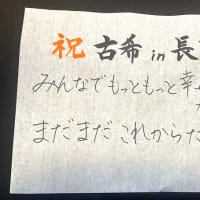 祝 古希 in 長
みんなでもっともっと幸せ
まだまだこれからだ